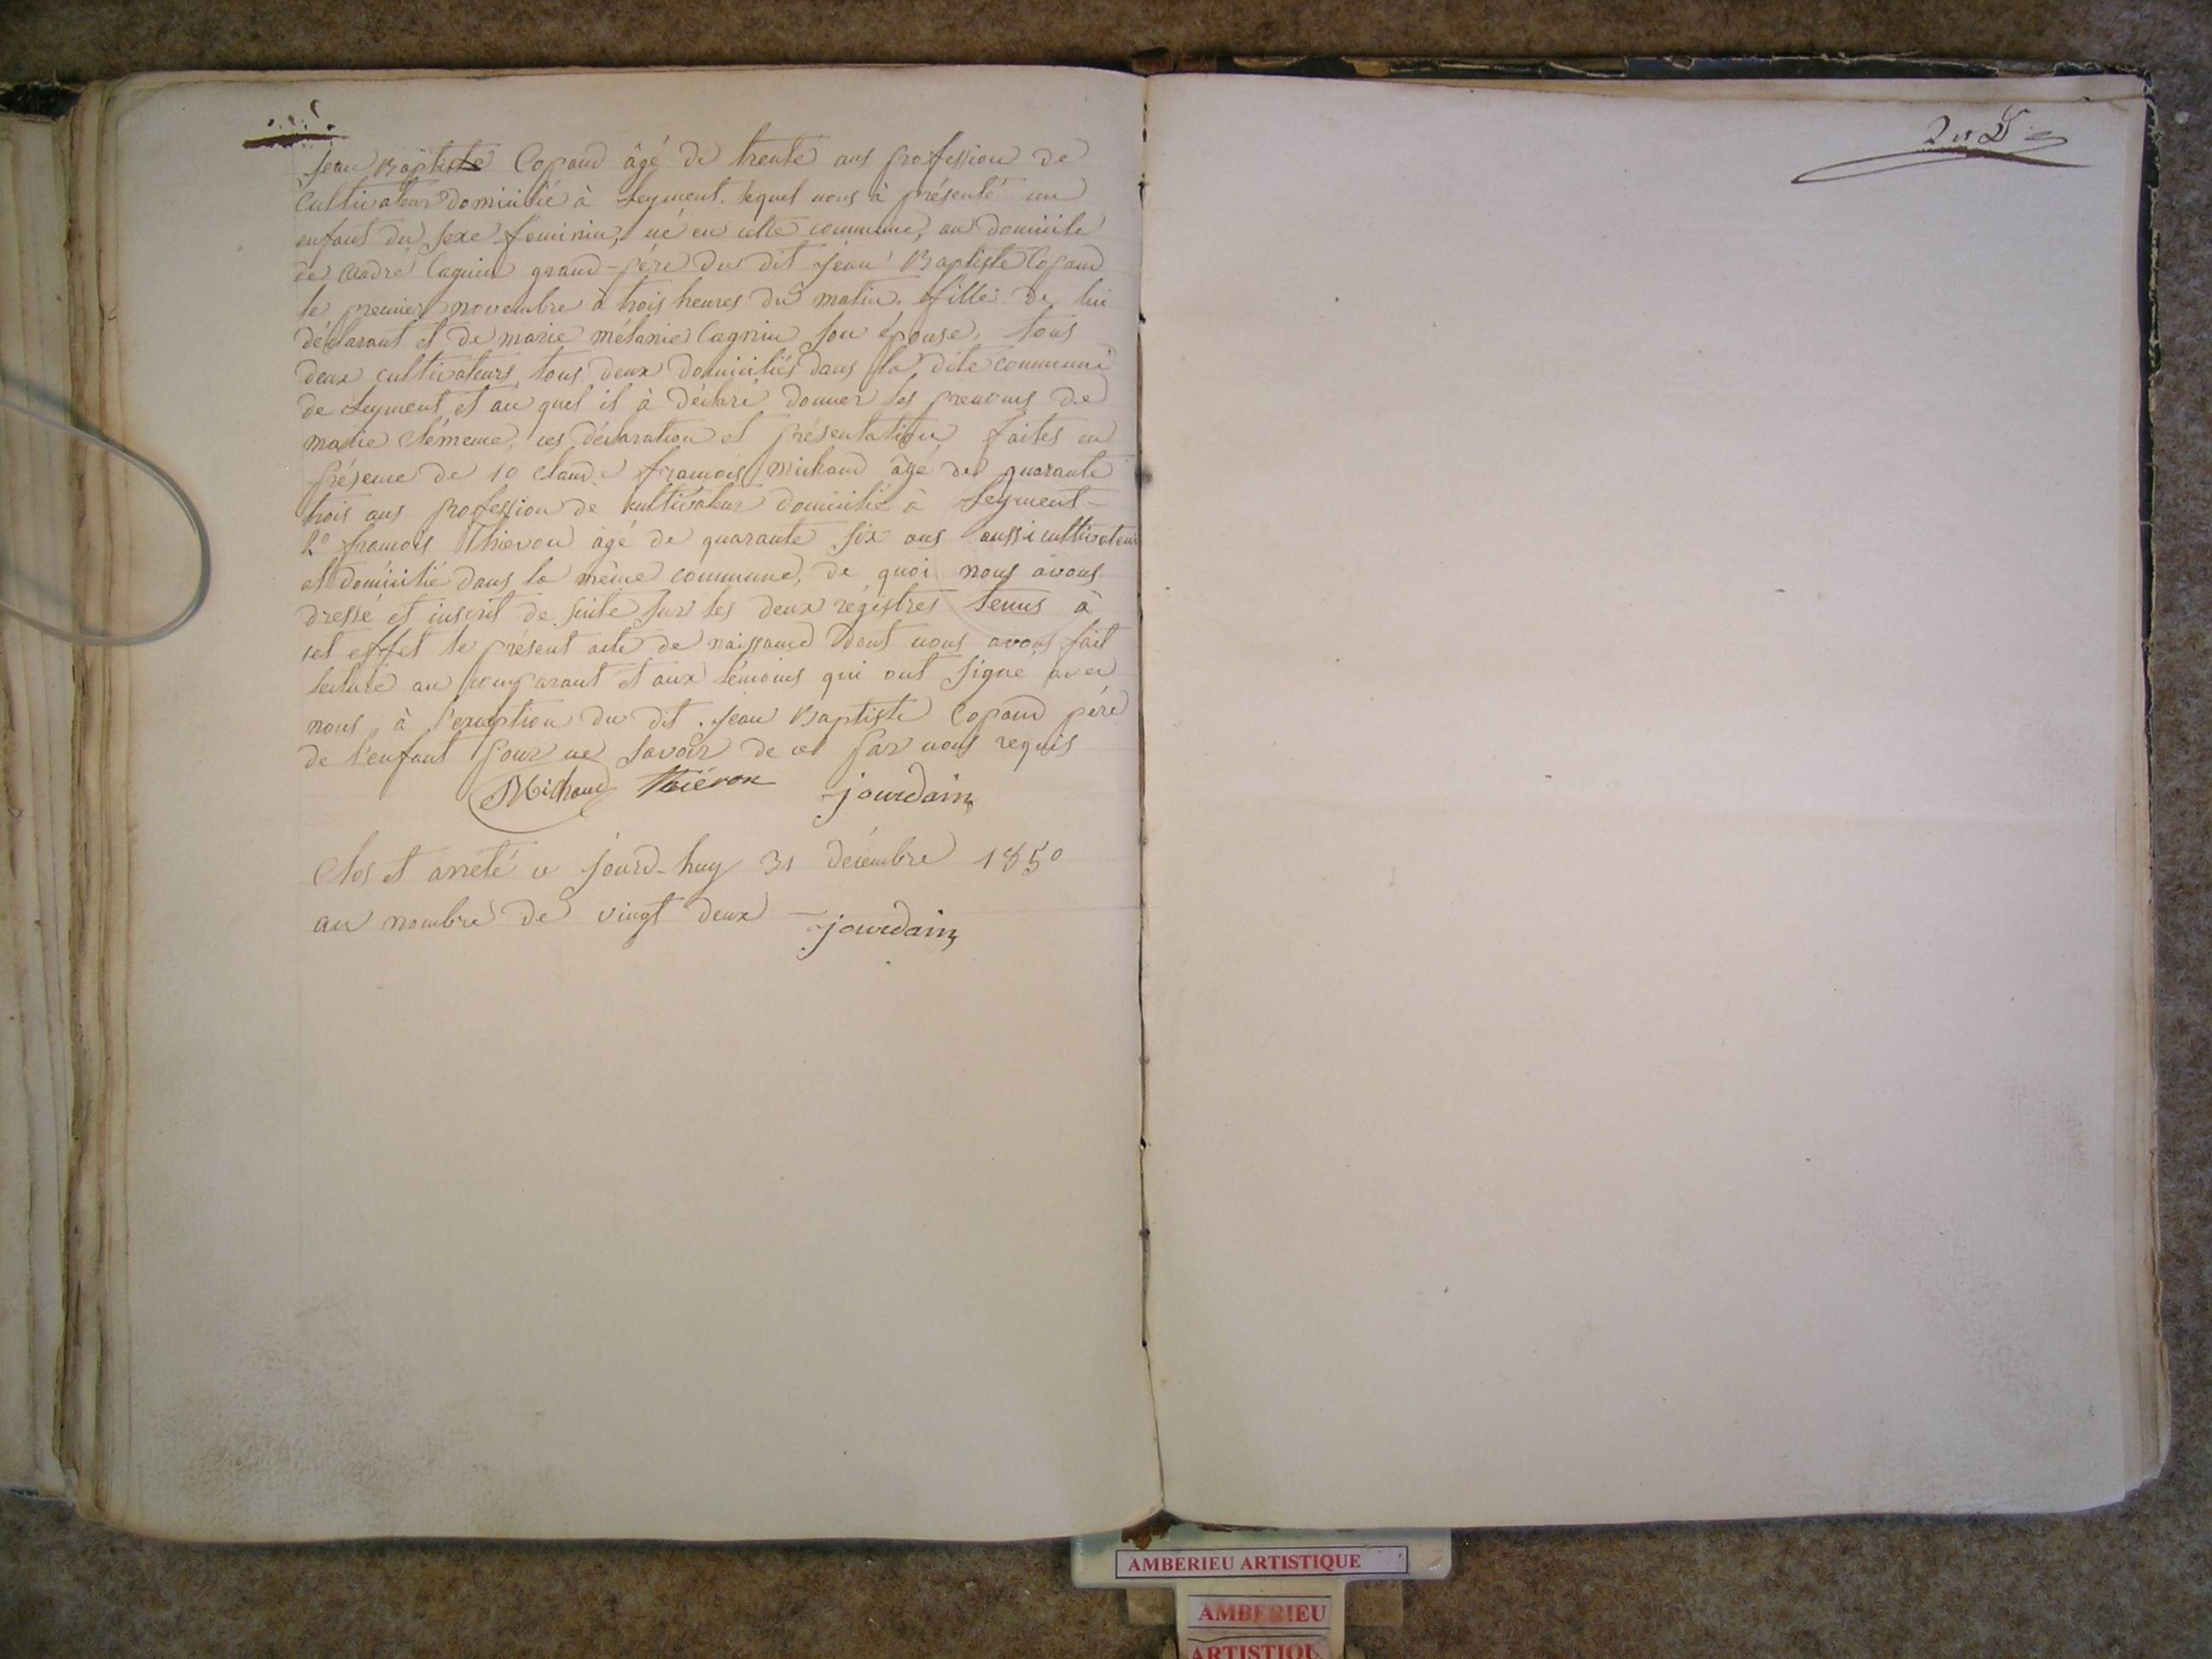 Jean Baptiste Copand âgé de trente ans profession de
Cultivateur domicilié à Leyment. lequel nous à présenté un
enfant du sexe féminin, né en cette commune, au domicile
de André Cagnin grand-père du dit Jean Baptiste Copand
le premier novembre à trois heures du matin. fille de lui
déclarant et de marie mélanie Cagnin son épouse, tous
deux cultivateurs, tous deux domiciliés dans la dite commune
de Leyment, et au quel il à déclaré donner les prenoms de
marie clémence, ces déclaration et présentation faites en
présence de 1o Claude françois michaud âgé de quarante
trois ans profession de cultivateur domicilié à Leyment-
2o françois Thiévon âgé de quarante six ans aussi cultivateur
et domicilié dans la même commune, de quoi nous avons
dressé et inscrit de suite sur les deux régistres tenus à
cet effet le présent acte de naissance dont nous avons fait
lecture au comparant et aux témoins qui ont signé avec
nous, à l'exception du dit. Jean Baptiste Copand père
de l'enfant pour ne savoir de ce par nous requis
Michaud Thiévon jourdain
Clos et arreté ce jourd-huy 31 décembre 1850
au nombre de vingt deux - jourdain
AMBERIEU ARTISTIQUE
AMBERIEU
ARTISTIQU